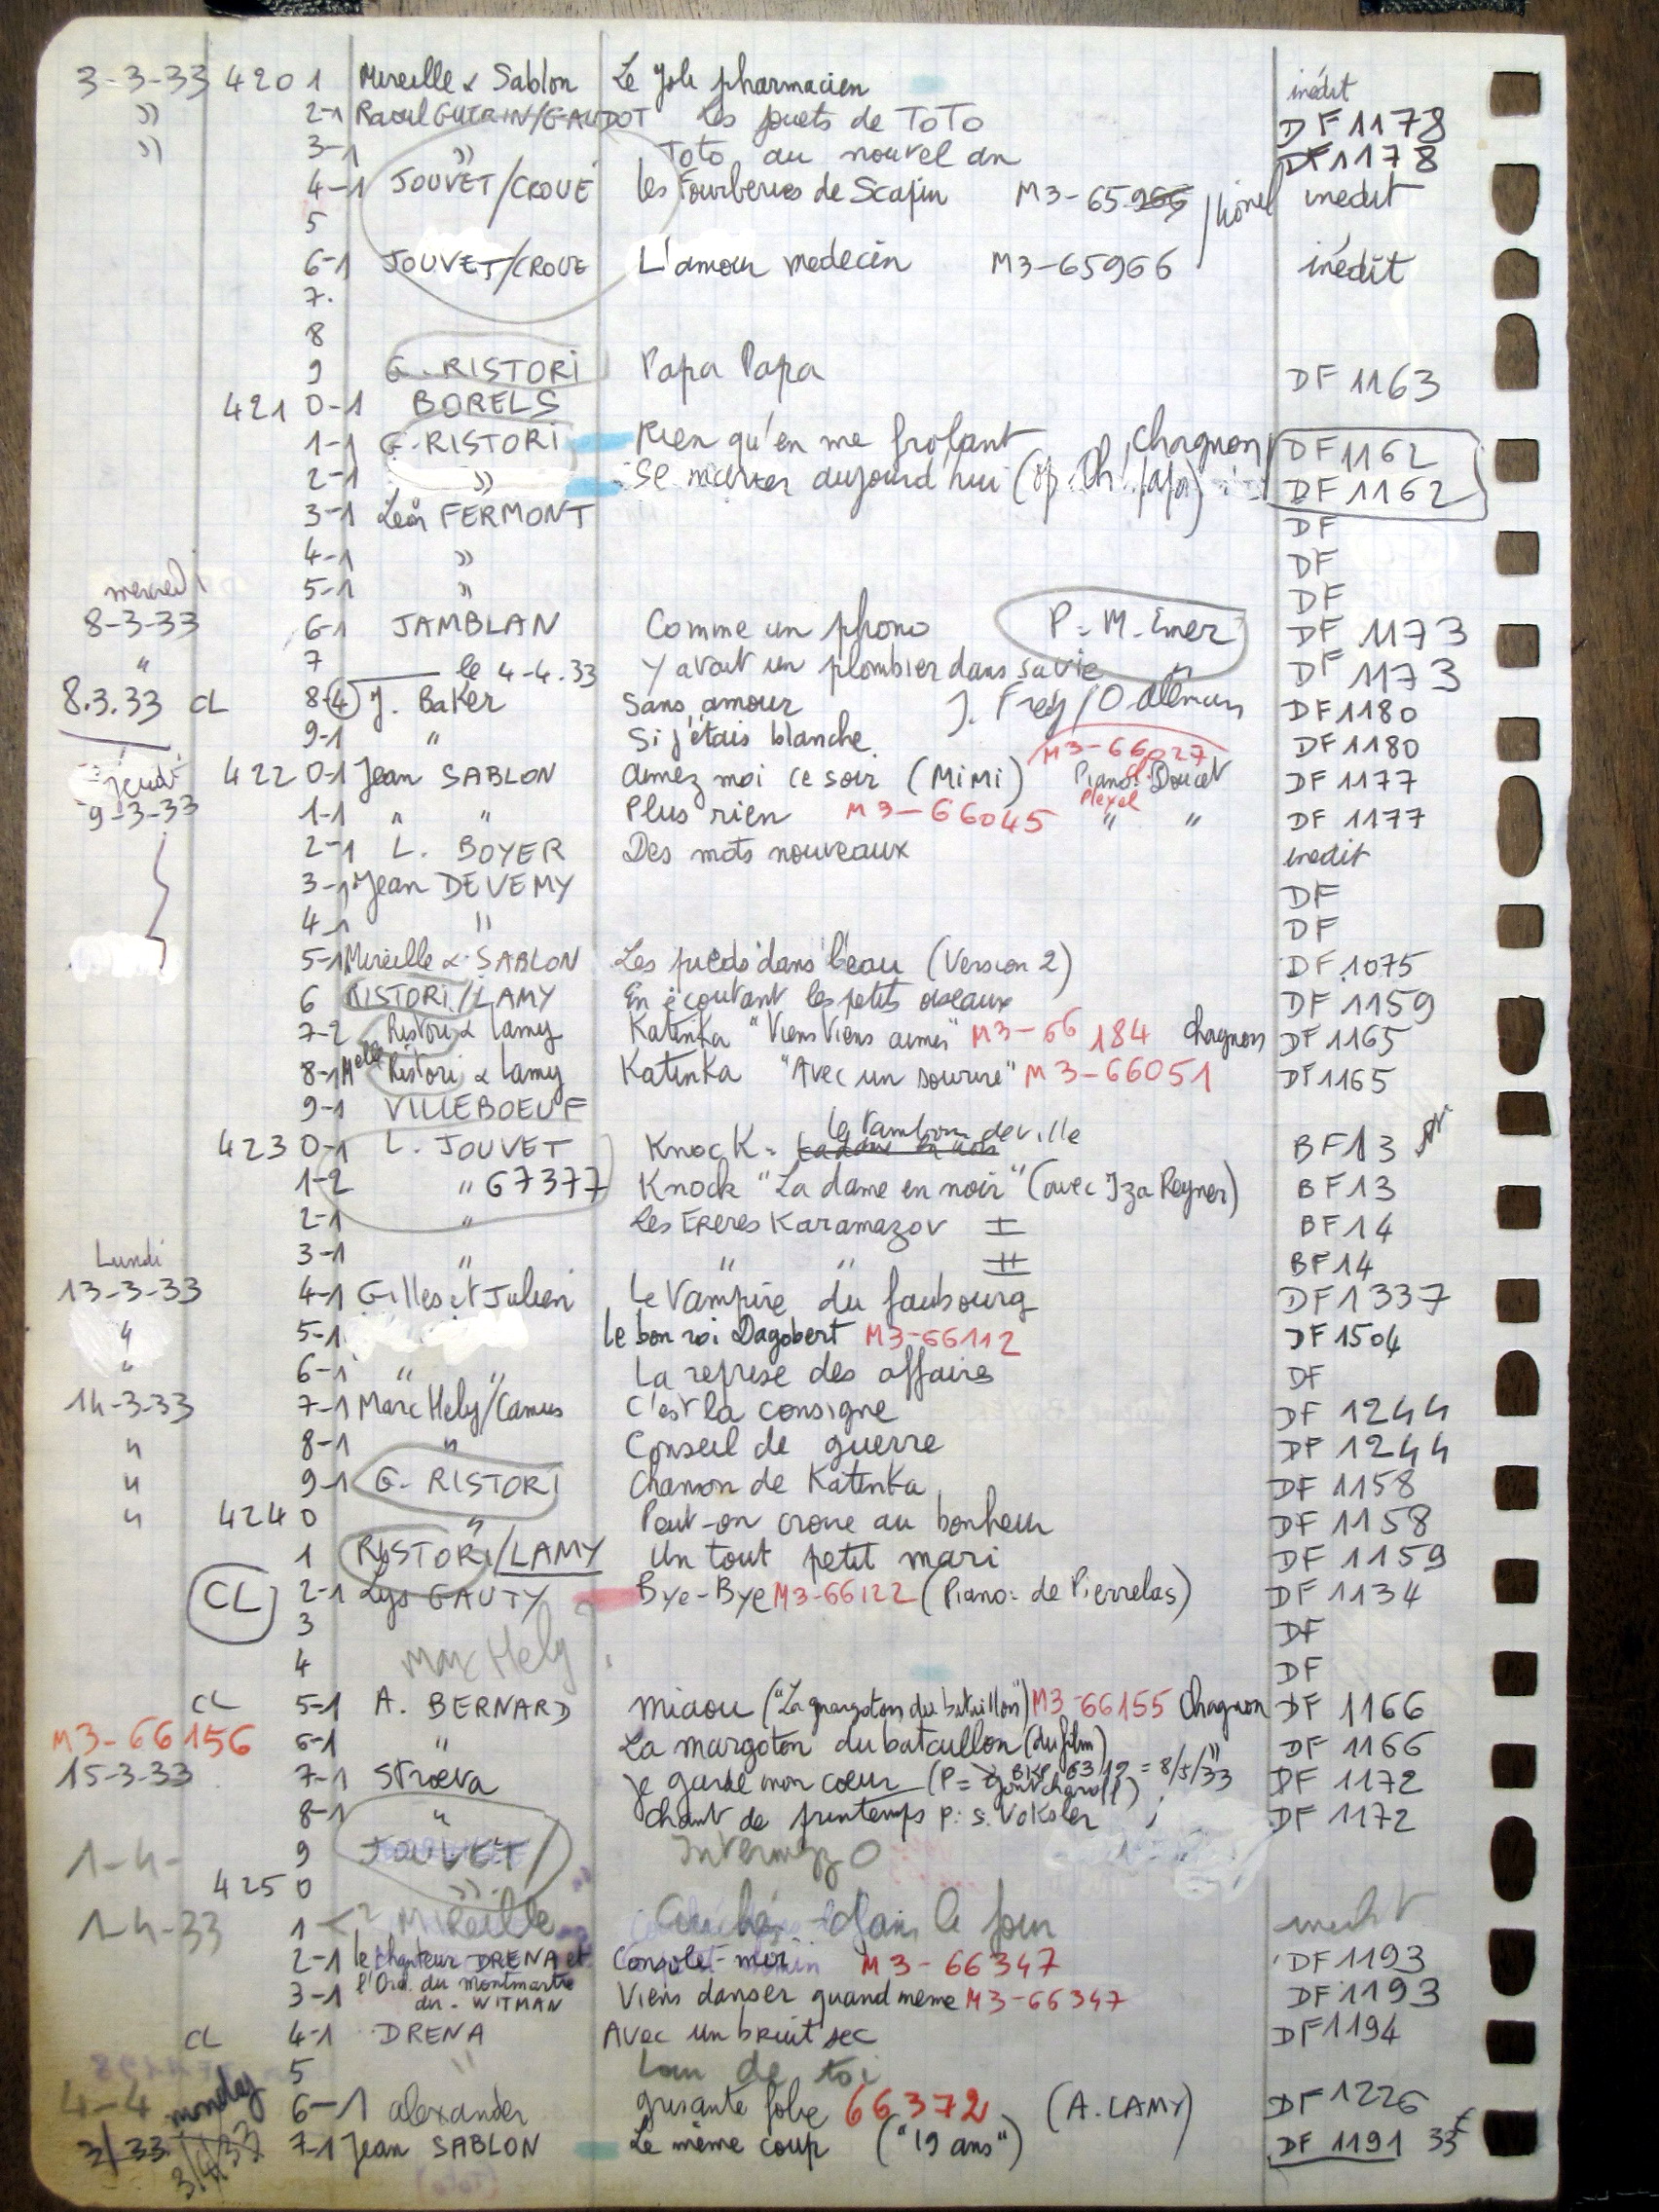 3-3-33 420 1 Mireille & Sablon Le Joli pharmacien inédit
" 2-1 Raoul GUERIN/GAUDOT Les jouets de TOTO DF1178
" 3-1 " Toto au nouvel an DF1178
4-1 JOUVET/CROUE Les Fourberies de Scapin M3-65966 / Lionel inédit
5
6-1 JOUVET/CROUE L'amour medecin M3-65966 inédit
7.
8
9 G. RISTORI Papa Papa DF 1163
421 0-1 BORELS
1-1 G. RISTORI Rien qu'en me frolant Chagnon DF1162
2-1 " Se marier aujourd'hui (op papa) DF1162
3-1 Léon FERMONT DF
4-1 " DF
mercredi 5-1 " DF
8-3-33 6-1 JAMBLAN Comme un phono P= M. Emer DF 1173
" 7 le 4-4.33 Y avait un plombier dans sa vie " DF 1173
8.3.33 CL 8-4 J. Baker Sans amour J. Fred / DF1180
9-1 " Si j'étais blanche M3-66027 DF1180
jeudi 422 0-1 Jean SABLON aimez moi ce soir (MiMi) Piano: C. Doucet DF 1177
9-3-33 1-1 " " Plus rien M3-66045 Pleyel " " DF 1177
2-1 L. BOYER Des mots nouveaux inedit
3-1 Jean DEVEMY DF
4-1 " DF
5-1 Mireille & SABLON Les pieds dans l'eau (Version 2) DF.1075
6 RISTORI/LAMY En écoutant les petits oiseaux DF.1159
7-2 Ristori & Lamy Katinka "Viens Viens aimer" M3-66184 Chagnon DF1165
8-1 Melle Ristori & Lamy Katinka "Avec un sourire" M3-66051 DF1165
9-1 VILLEBOEUF
423 0-1 L. JOUVET Knock= La dame en noir le Tambour de ville BF13
1-2 " 67377 Knock "La dame en noir" (avec Iza Reyner) BF13
2-1 " Les Freres Karamazov I BF14
Lundi 3-1 " " " II BF14
13-3-33 4-1 Gilles et Julien Le Vampire du faubourg DF1337
" 5-1 le bon roi Dagobert M3-66112 DF1504
" 6-1 " " La reprise des affaires DF
14-3-33 7-1 Marc Hely/Camus C'est la consigne DF 1244
" 8-1 " Conseil de guerre DF 1244
" 9-1 G. RISTORI Chanson de Katinka DF 1158
" 424 0 " Peut-on croire au bonheur DF 1158
1 RISTORI/LAMY Un tout petit mari DF 1159
CL 2-1 Lys GAUTY Bye-Bye M3-66122 (Piano: de Pierrelas) DF 1134
3 ? DF
4 Marc Hely DF
CL 5-1 A. BERNARD Miaou ("La margoton du bataillon") M3-66155 Chagnon DF 1166
M3-66156 6-1 " La margoton du bataillon (du film) " DF 1166
15-3-33 7-1 Stroeva Je garde mon coeur (P= Gontcharoff) = 8/5/33 DF 1172
8-1 " Chant de printemps P: S. Voksler DF 1172
1-4- 9 JOUVET/ Intermezzo
425 0 "
1-4-33 1 <2 Mireille Couchés dans le foin inedit
2-1 le chanteur DRENA et Console-moi M3-66347 DF1193
l'Orch. du montmartre
3-1 dir. WITMAN Viens danser quand meme M3-66347 DF1193
CL 4-1 DRENA Avec un bruit sec DF1194
5 " Loin de toi
4-4 monday 6-1 alexander grisante folie 66372 (A. LAMY) DF 1226
3/33 3/4/33 7-1 Jean SABLON Le même coup ("19 ans") DF 1191 33